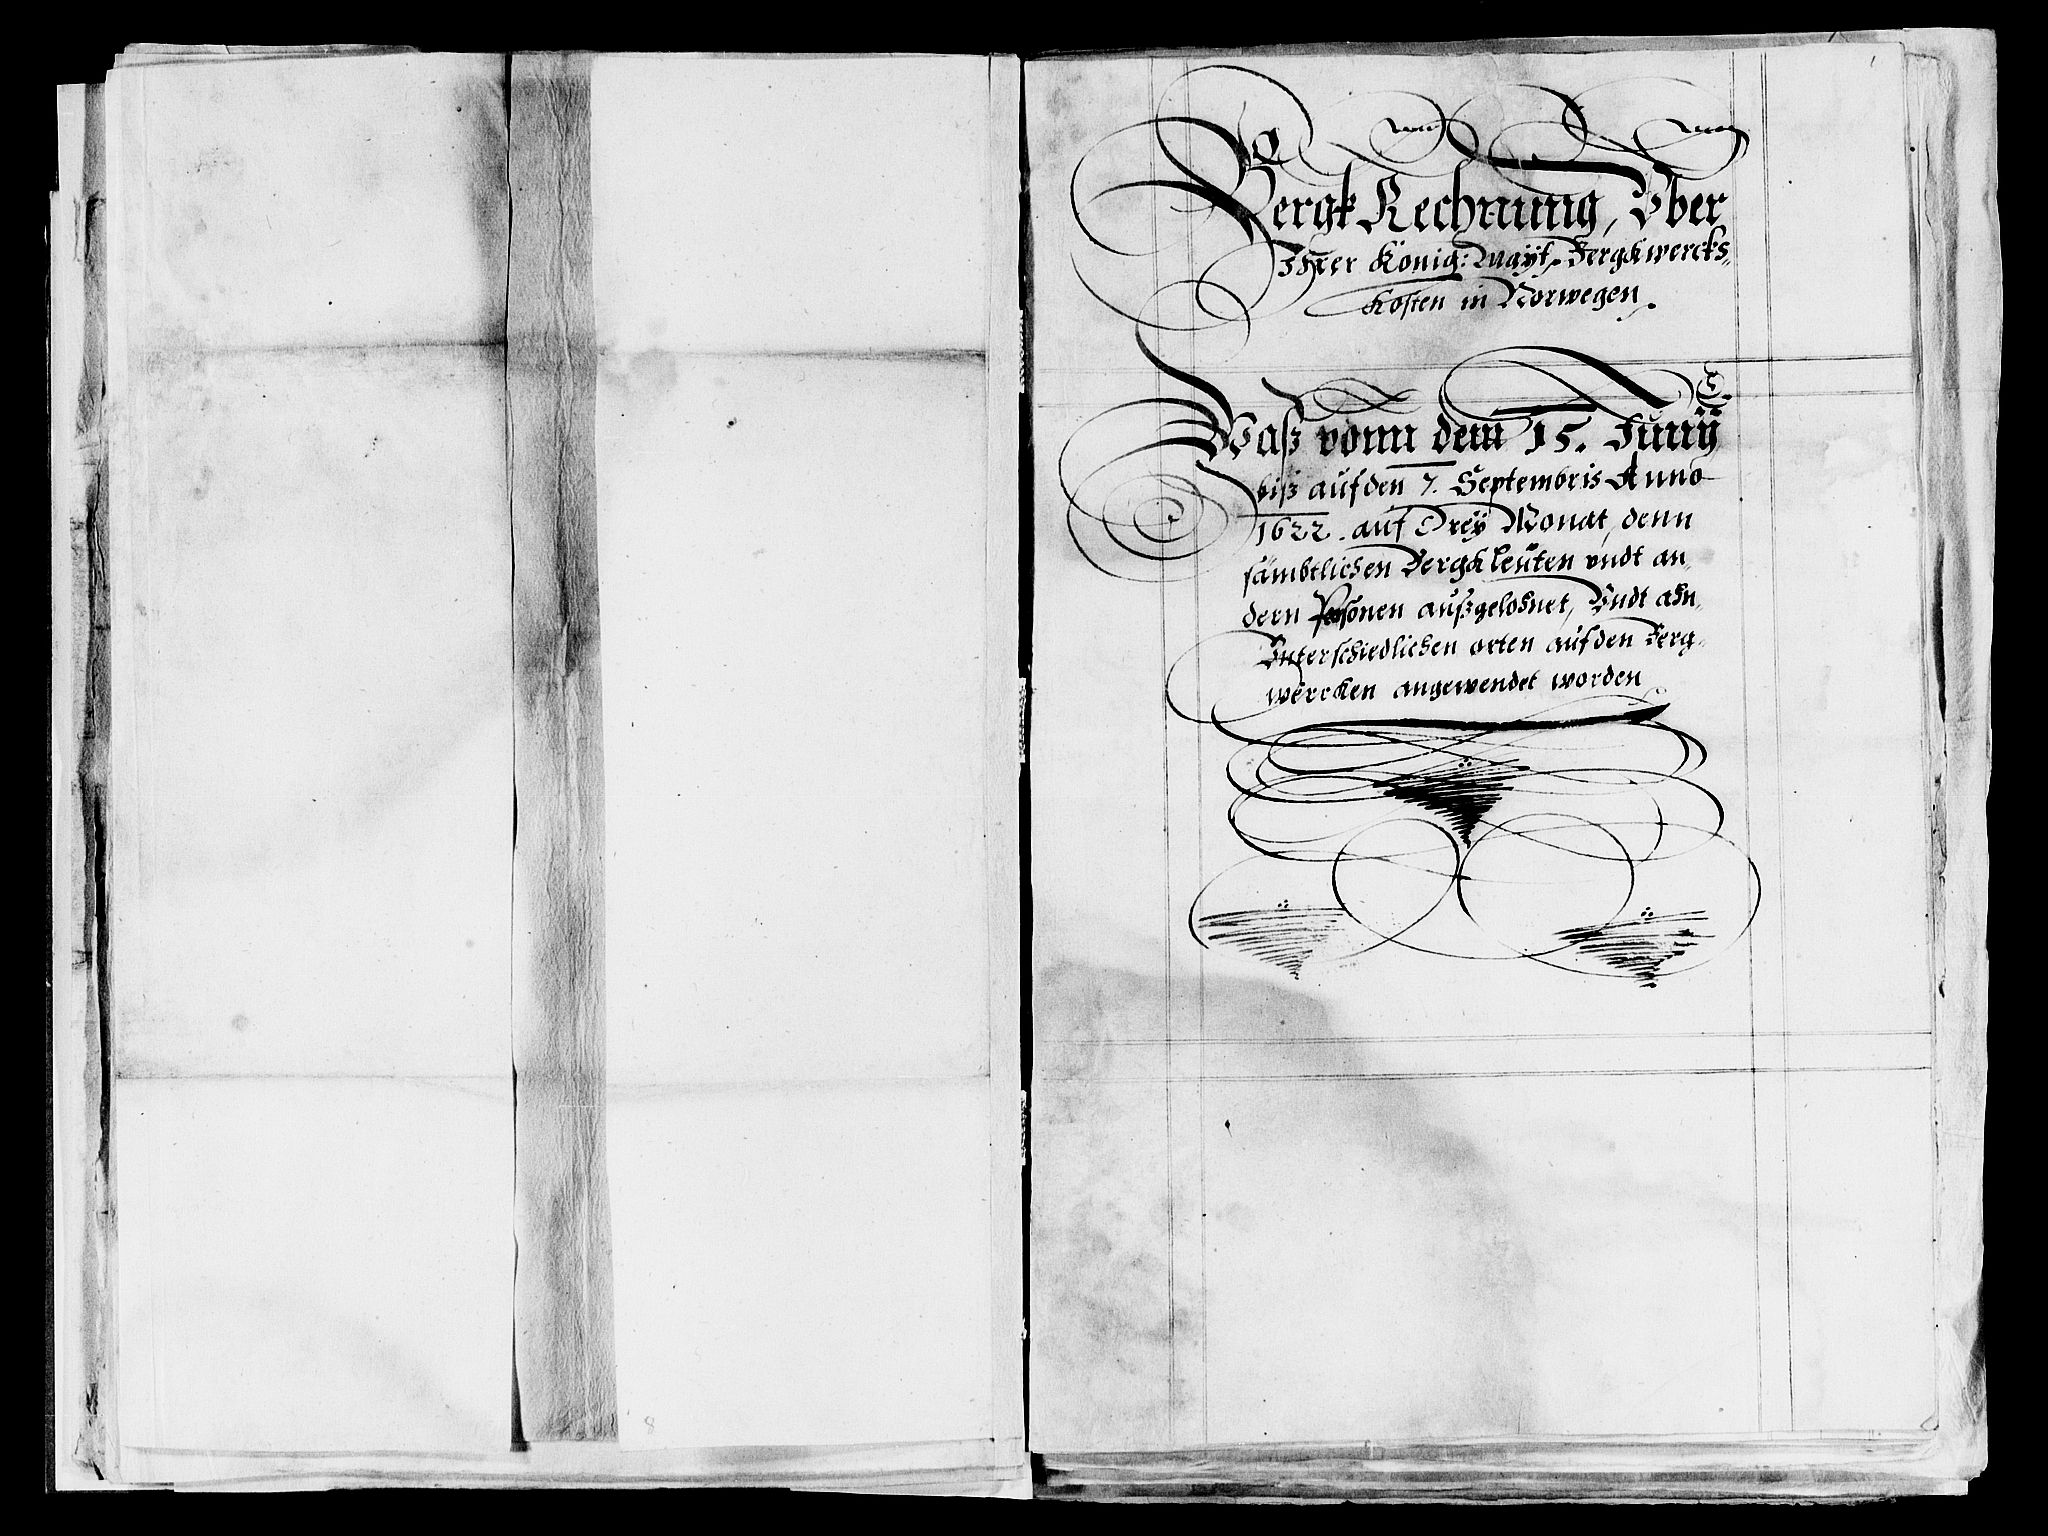 Bergk Rechnung, Vber
Ihrer König: Mayt. Bergkwercks-
Kosten in Norwegen.
Waß vonn dem 15. Junÿ
biß auf den 7. Septembris Anno
1622. auf Dreÿ Monat, denn
sämbtlichen Bergkleüten vndt an,
dern Personen außgelohnet, Vndt ahn,
Vnterschiedlichen orten auf den Berg-
wercken angewendet worden
8